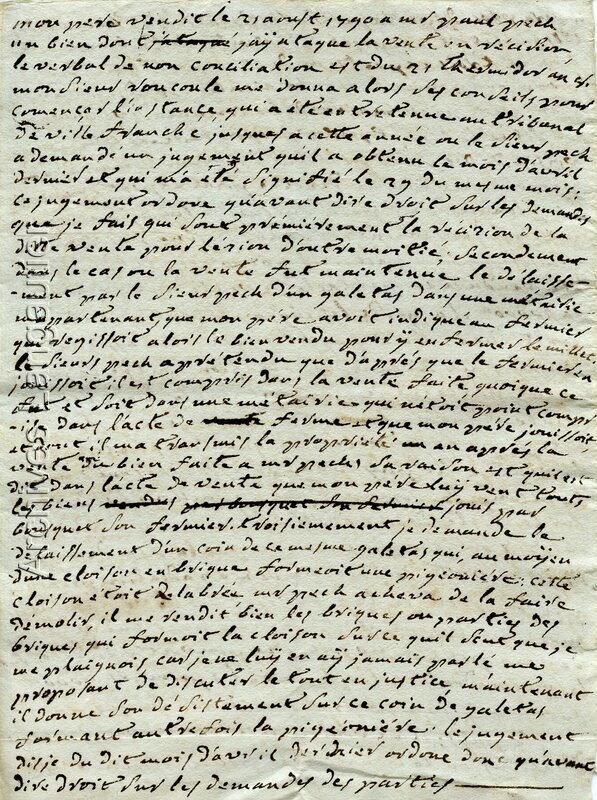 mon pere vendit le 21 aoust 1790 a mr paul pech
un bien dont j'ataqué jaÿ ataque la vente en récision,
le verbal de non conciliation est du 21 thermidor an
monsieur roucoule me donna alors ses conseils pour
començer l'instançe, qui a été entretenue au tribunal
de ville franche jusques a cette année ou le sieur pech
a demandé un jugement qu'il a obtenu le mois d'avril
dernier et qui m'a été signifié le 29 du mesme mois;
ce jugement ordone qu'avant dire droit sur les demandes
que je fais qui sont prémiérement la récision de la
dite vente pour lésion d'outre moitié, secondement
dans le cas ou la vente fut maintenue le délaisse-
-ment par le sieur pech d'un galetas dans une métairie
m'apartenant que mon pere avoit indiqué au fermier
qui régissoit alors le bien vendu pour y enfermer le millet,
le sieur pech a prétendu que d'aprés que le fermier en
jouissoit il est compris dans la vente faite quoique ce
fut et soit dans une métairie qui n'étoit point compri
-ise dans l'acte de ferme et que mon pere jouissoit,
et dont il m'a transmis la propriété un an aprés la
vente du bien faite a mr pech; sa raison est qu'il est
dit dans l'acte de vente que mon pere luÿ vent touts
les biens vendus par bousquet son fermier jouis par
bousquet son fermier. troisiemement je demande le
délaissement d'un coin de ce mesme galetas qui, au moÿen
d'une cloison en brique formoit une pigeoniére: cette
cloison etoit delabrée mr pech acheva de la faire
demolir, il me rendit bien les briques ou parties des
briques qui formoit la cloison surce qu'il sent que je
me plaignois, car je ne luÿ en aÿ jamais parlé me
proposant de discuter le tout en justice, maintenant
il donne son désistement sur ce coin de galetas
formant autrefois la pigeoniére: le jugement
dis je du dit mois d'avril dernier ordone donc qu'avant
dire droit sur les demandes des parties